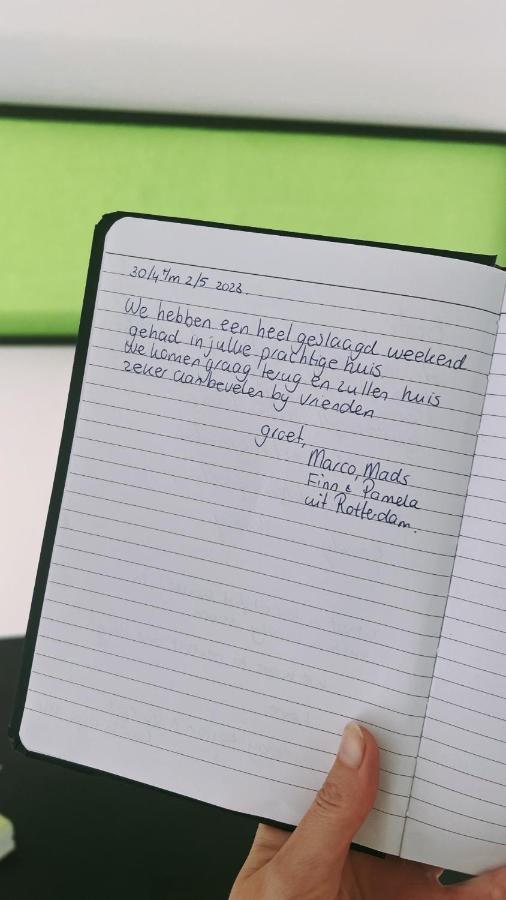 30/4 t/m 2/5 2023.
We hebben een heel geslaagd weekend
gehad in jullie prachtige huis
We komen graag terug en zullen huis
zeker aanbevelen by vrienden
groet,
Marco, Mads
Finn & Pamela
uit Rotterdam.